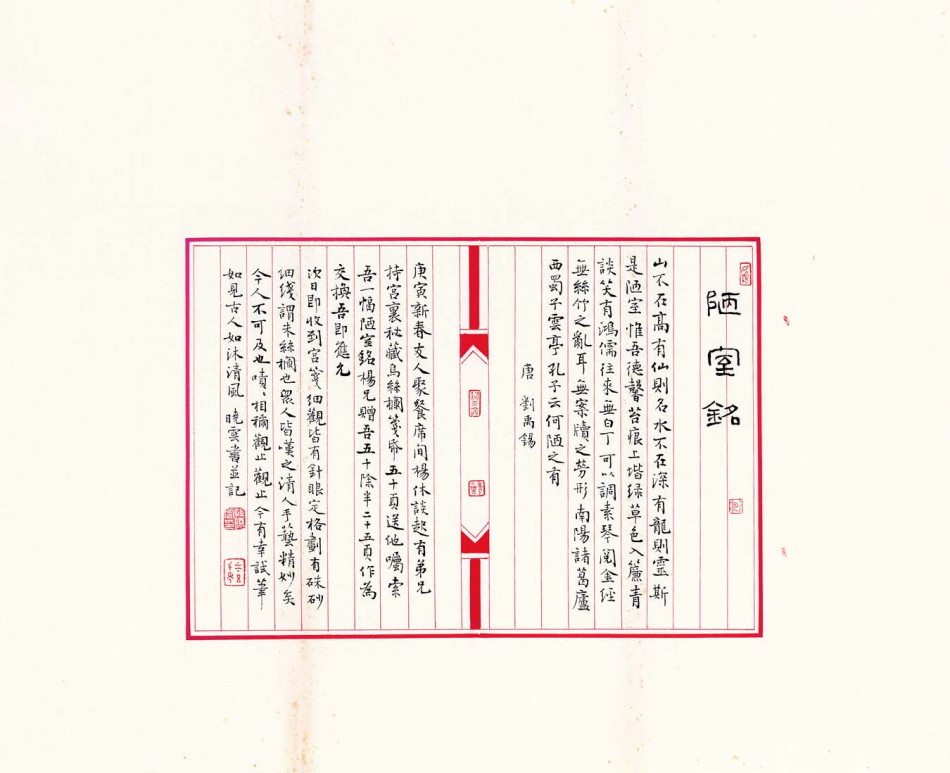 陋室銘
山不在高有仙則名水不在深有龍則靈斯
是陋室惟吾德馨苔痕上堦绿草色入簾青
談笑有鴻儒往來無白丁可以調素琴閱金經
無絲竹之亂耳無案牘之劳形南陽諸葛廬
西蜀子雲亭孔子云何陋之有
唐 劉禹錫
庚寅新春友人聚餐席間楊休談起有弟兄
持宮裏秘藏烏絲欄箋帋五十頁送他囑索
吾一幅陋室銘楊兄贈吾五十除半二十五頁作為
交換吾即應允
次日即收到宮箋细觀皆有針眼定格劃有硃砂
细綫謂朱絲欄也眾人皆嘆之清人手藝精妙矣
今人不可及也嘖嘖相稱觀止觀止今有幸試筆
如見古人如沐清風 曉雲書並記